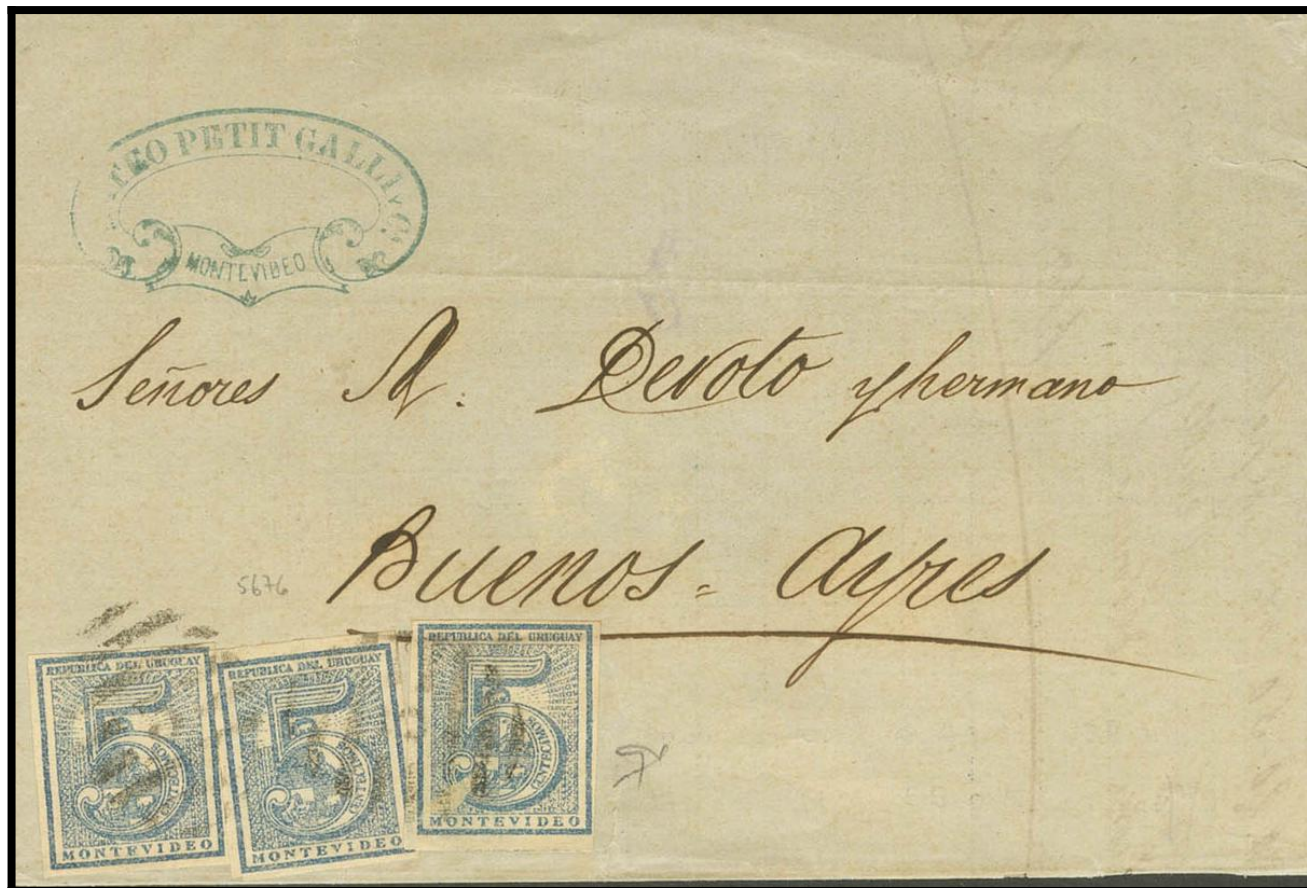 PETIT GALLI Y Cª
MONTEVIDEO
Señores A. Devoto y hermano
Buenos = Ayres
5676
REPUBLICA DEL URUGUAY
5
CENTECIMOS
MONTEVIDEO
REPUBLICA DEL URUGUAY
5
CENTECIMOS
MONTEVIDEO
REPUBLICA DEL URUGUAY
5
CENTECIMOS
MONTEVIDEO